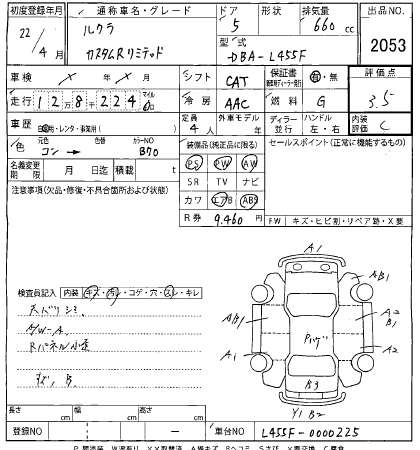 初度登録年月 通称車名・グレード ドア 形状 排気量 出品NO
22/4月 ルクラ カスタムRリミテッド 5 660cc 2053
型式 DBA-L455F
車検 / × 月 シフト CAT 保証書 有・無 評価点 3.5
走行 12万8千224 マイル Km 冷房 AAC 燃料 G 内装評価 C
車歴 自家用・レンタ・事業用( ) 定員 4人 外車モデル 年 ディーラー 並行 ハンドル 左・右
色 元色 コン → 色替 カラーNO B70 装備品(純正品に限る) セールスポイント(正常に機能するもの)
PS PW AW
名義変更期限 月 日迄 積載 t SR TV ナビ
注意事項(欠品・修復・不具合箇所および状態) カワ エアB ABS
R券 9,460円 FW キズ・ヒビ割・リペア跡・X要
A1
AB1
検査員記入 内装 キズ・汚レ・コゲ・穴・スレ・キレ
天バリシミ
A/W-A
Rパネル小凹
キズ、B
AB1 A2 B1
A1 A2
B3
Y1 B2
長さ cm 幅 cm 高さ cm
登録NO ー 車台NO L455F-0000225